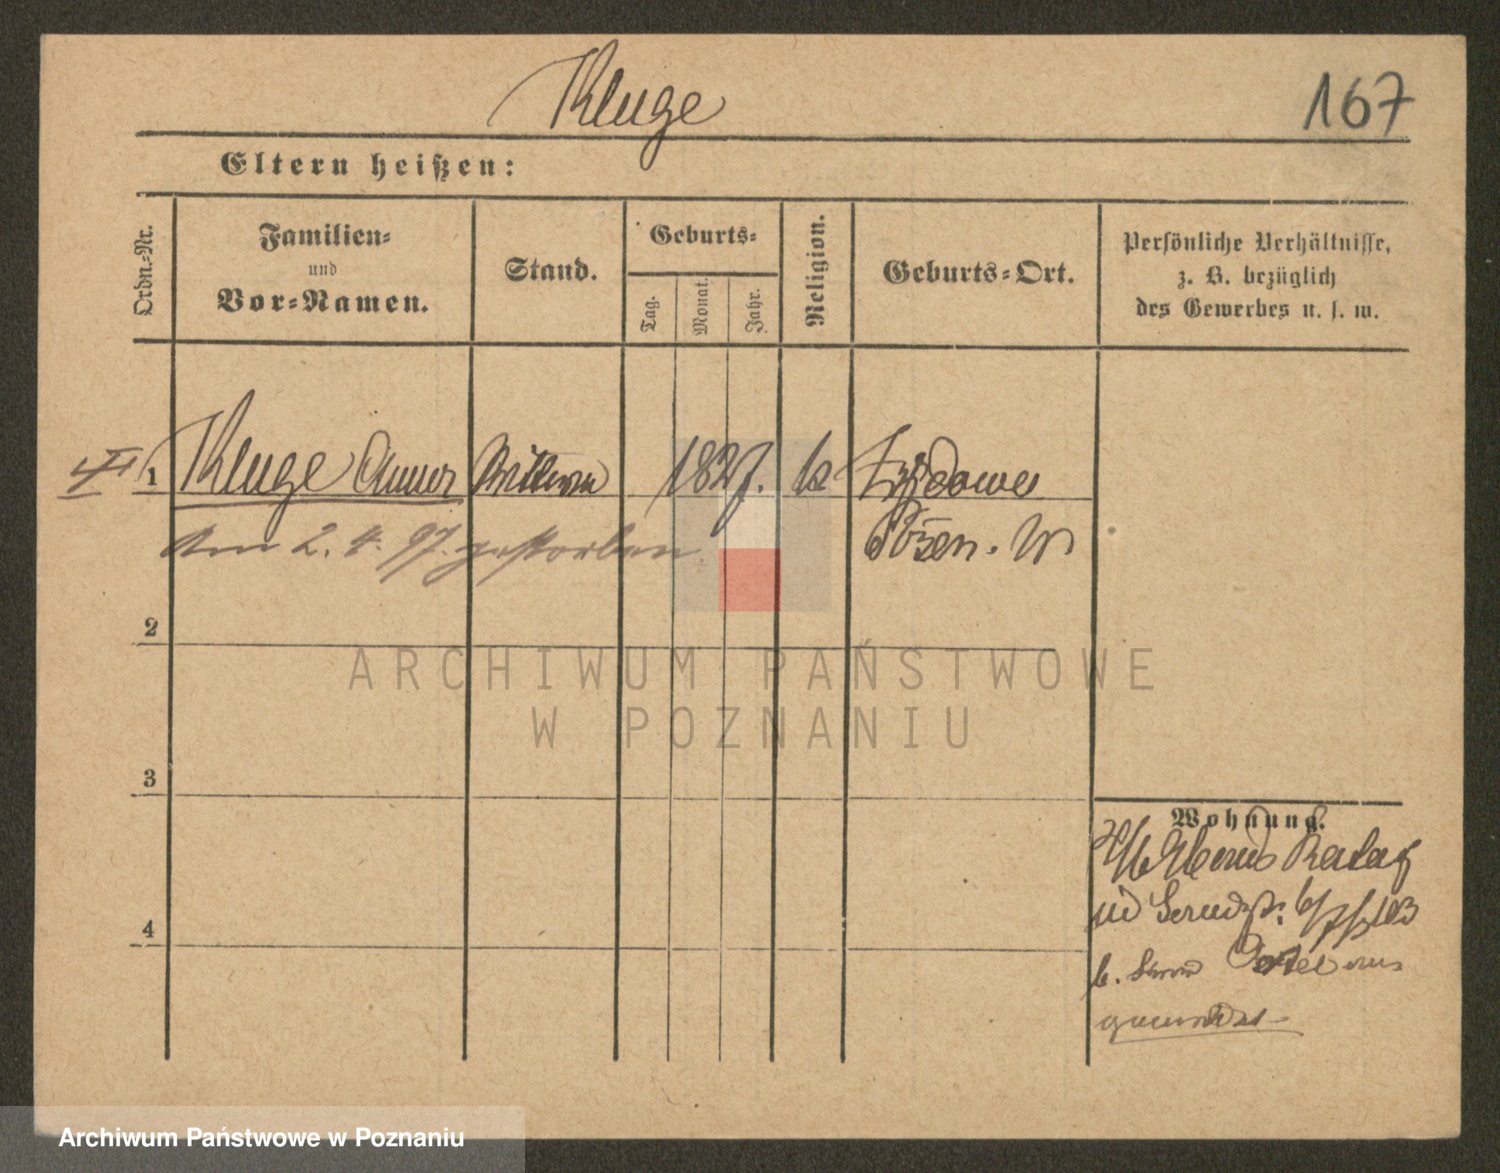 Kluge
167
Eltern heißen:
Ordn.-Nr.
Familien-
und
Vor-Namen.
Stand.
Geburts-
Tag.
Monat.
Jahr.
Religion.
Geburts-Ort.
Persönliche Verhältnisse,
z. B. bezüglich
des Gewerbes u. s. w.
1 Kluge Anna Wittwe 1827. k
Posen. W
Am 2. 4. 97. gestorben
2
3
4
Wohnung.
gemeldet
ARCHIWUM PAŃSTWOWE
W POZNANIU
Archiwum Państwowe w Poznaniu